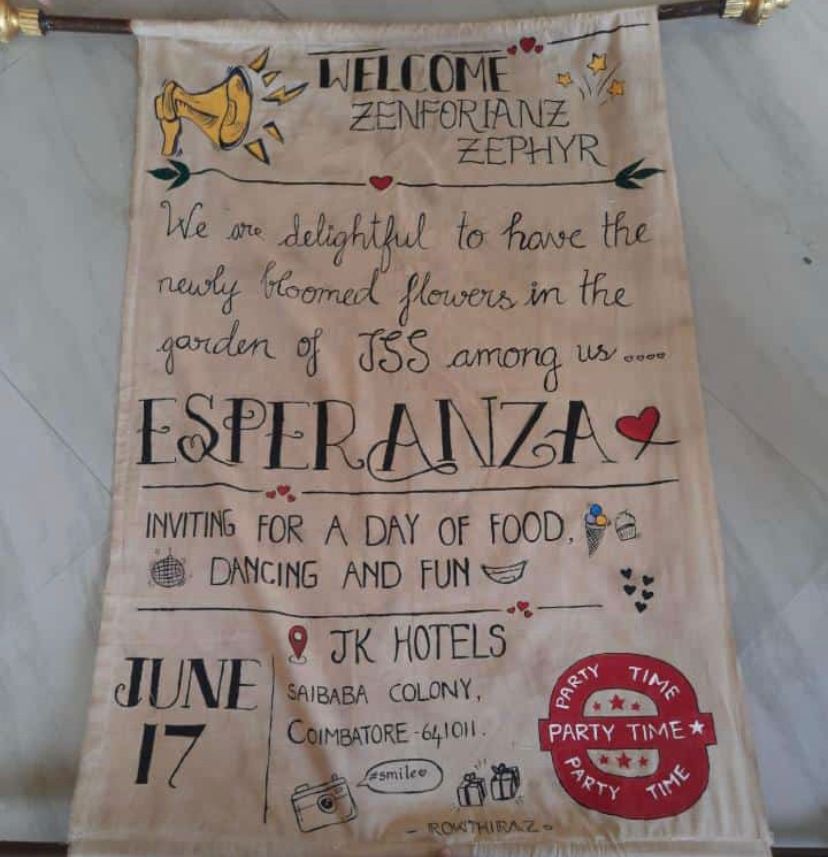 WELCOME
ZENFORIANZ
ZEPHYR
We are delightful to have the
newly bloomed flowers in the
garden of JSS among us....
ESPERANZA
INVITING FOR A DAY OF FOOD,
DANCING AND FUN
JK HOTELS
JUNE
17
SAIBABA COLONY,
COIMBATORE-641011.
#smile
PARTY TIME
PARTY TIME
PARTY TIME
- ROWTHIRAZ -